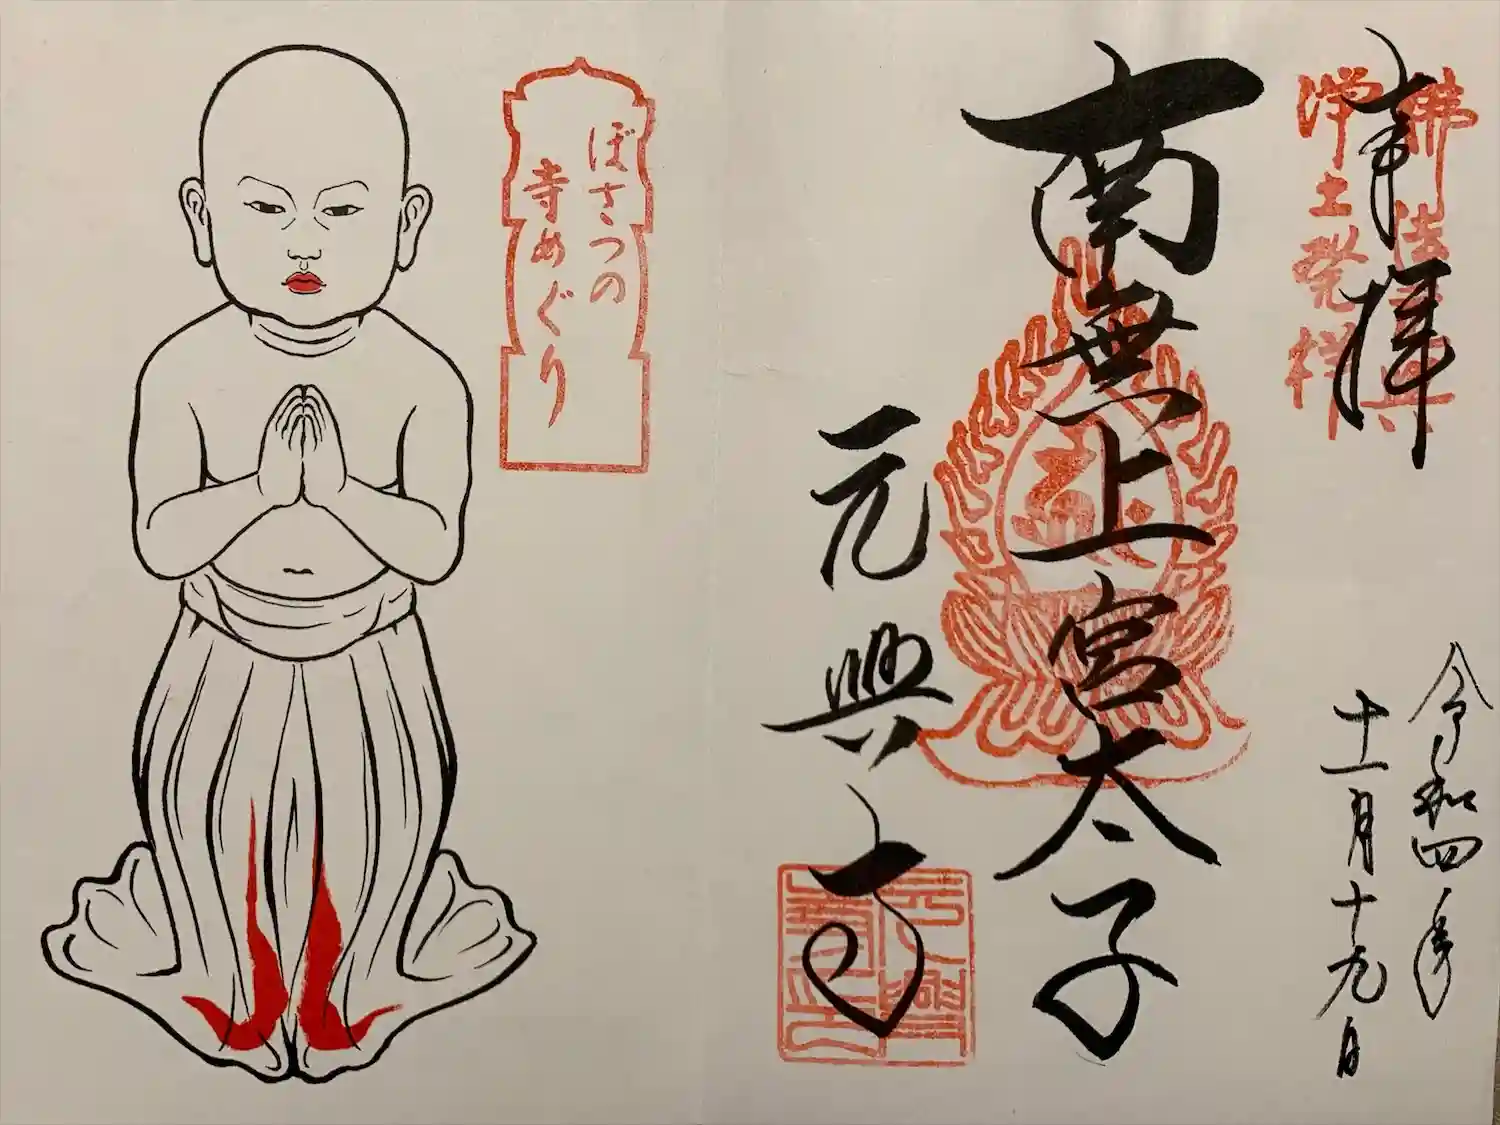 佛法元興
浄土発祥
奉拝
令和四年
十一月十九日
南無上宮太子
元興寺
ぼさつの
寺めぐり